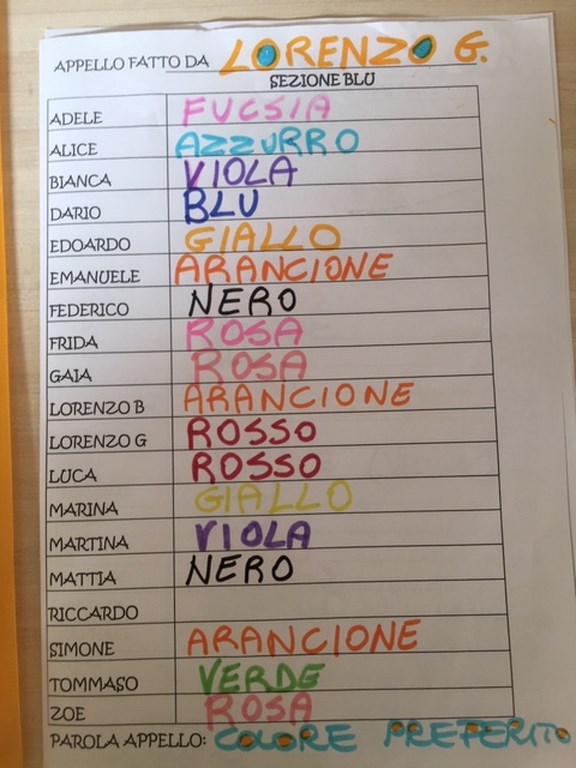 APPELLO FATTO DA LORENZO G.
SEZIONE BLU
ADELE FUCSIA
ALICE AZZURRO
BIANCA VIOLA
DARIO BLU
EDOARDO GIALLO
EMANUELE ARANCIONE
FEDERICO NERO
FRIDA ROSA
GAIA ROSA
LORENZO B ARANCIONE
LORENZO G ROSSO
LUCA ROSSO
MARINA GIALLO
MARTINA VIOLA
MATTIA NERO
RICCARDO
SIMONE ARANCIONE
TOMMASO VERDE
ZOE ROSA
PAROLA APPELLO: COLORE PREFERITO